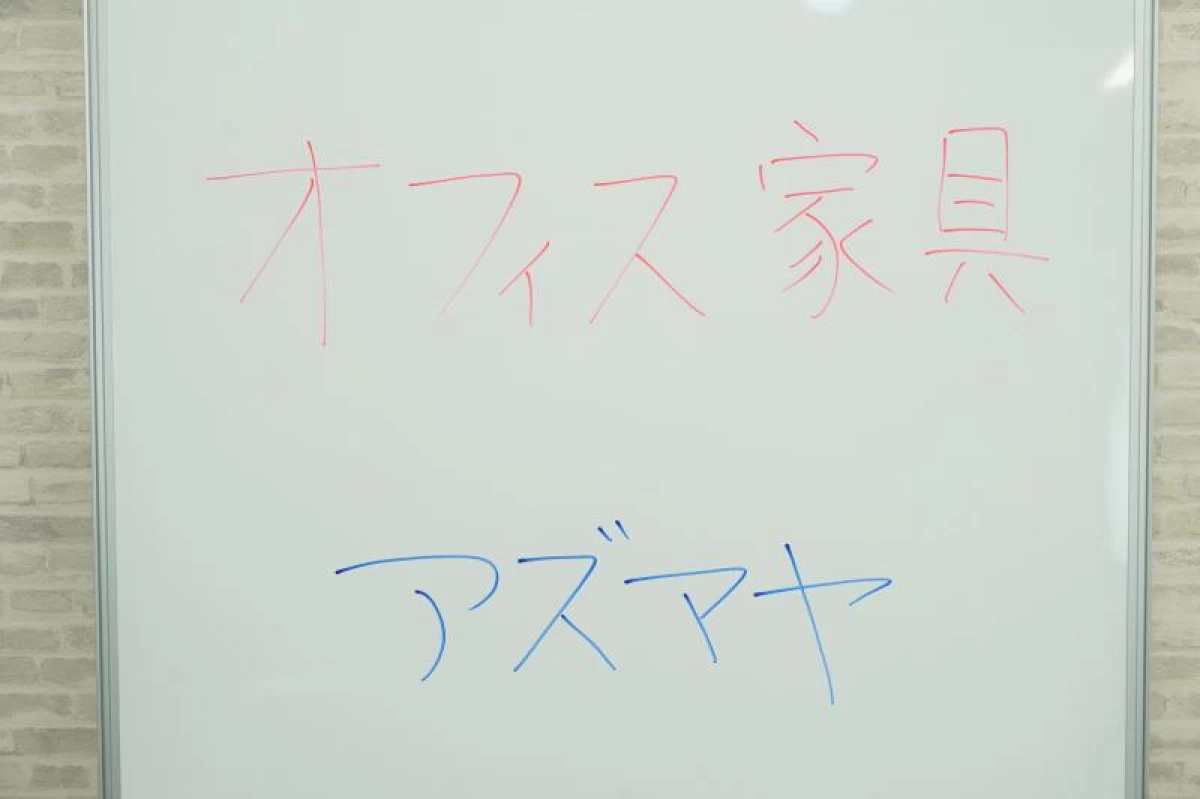 オフィス家具
アズマヤ